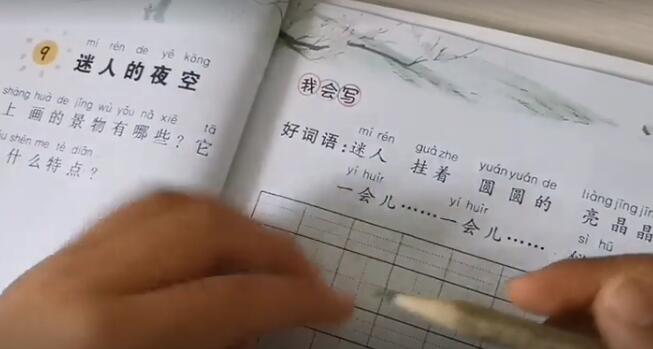 9
mí rén de yè kōng
迷人的夜空
shàng huà de jǐng wù yǒu nǎ xiē tā
上画的景物有哪些？它
shén me tè diǎn
什么特点？
我会写
mí rén guà zhe yuán yuán de liàng jīng jīng
好词语：迷人 挂着 圆圆的 亮晶晶
yí huìr yí huìr sì hū
一会儿……一会儿……